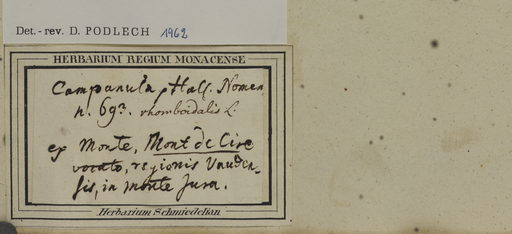 Det. - rev. D. PODLECH 1962
HERBARIUM REGIUM MONACENSE
Campanula, Hall. Nomen
n. 693. rhomboidalis L.
ex Monte, Mont de Cire
vocato, regionis Vaudén-
sis, in monte Jura.
Herbarium Schmiedelian